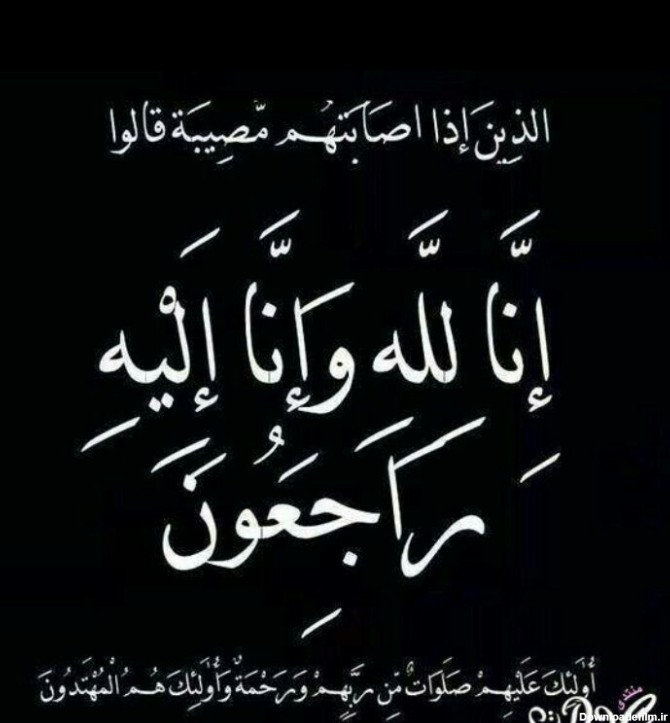 الذِينَ إِذا اصَابَتهُم مّصِيبَة قالوا
إِنَّا لله وَإِنَّا إِلَيْهِ
رَاجَعُونَ
أُولَئكَ عَلَيهِمْ صَلَوَاتٌ مِّن ربِّهِمْ وَرَحْمَةٌ وَأُولَئِكَ هُمُ الْمُهْتَدُونَ
منتدى
Downloadefilm.ir